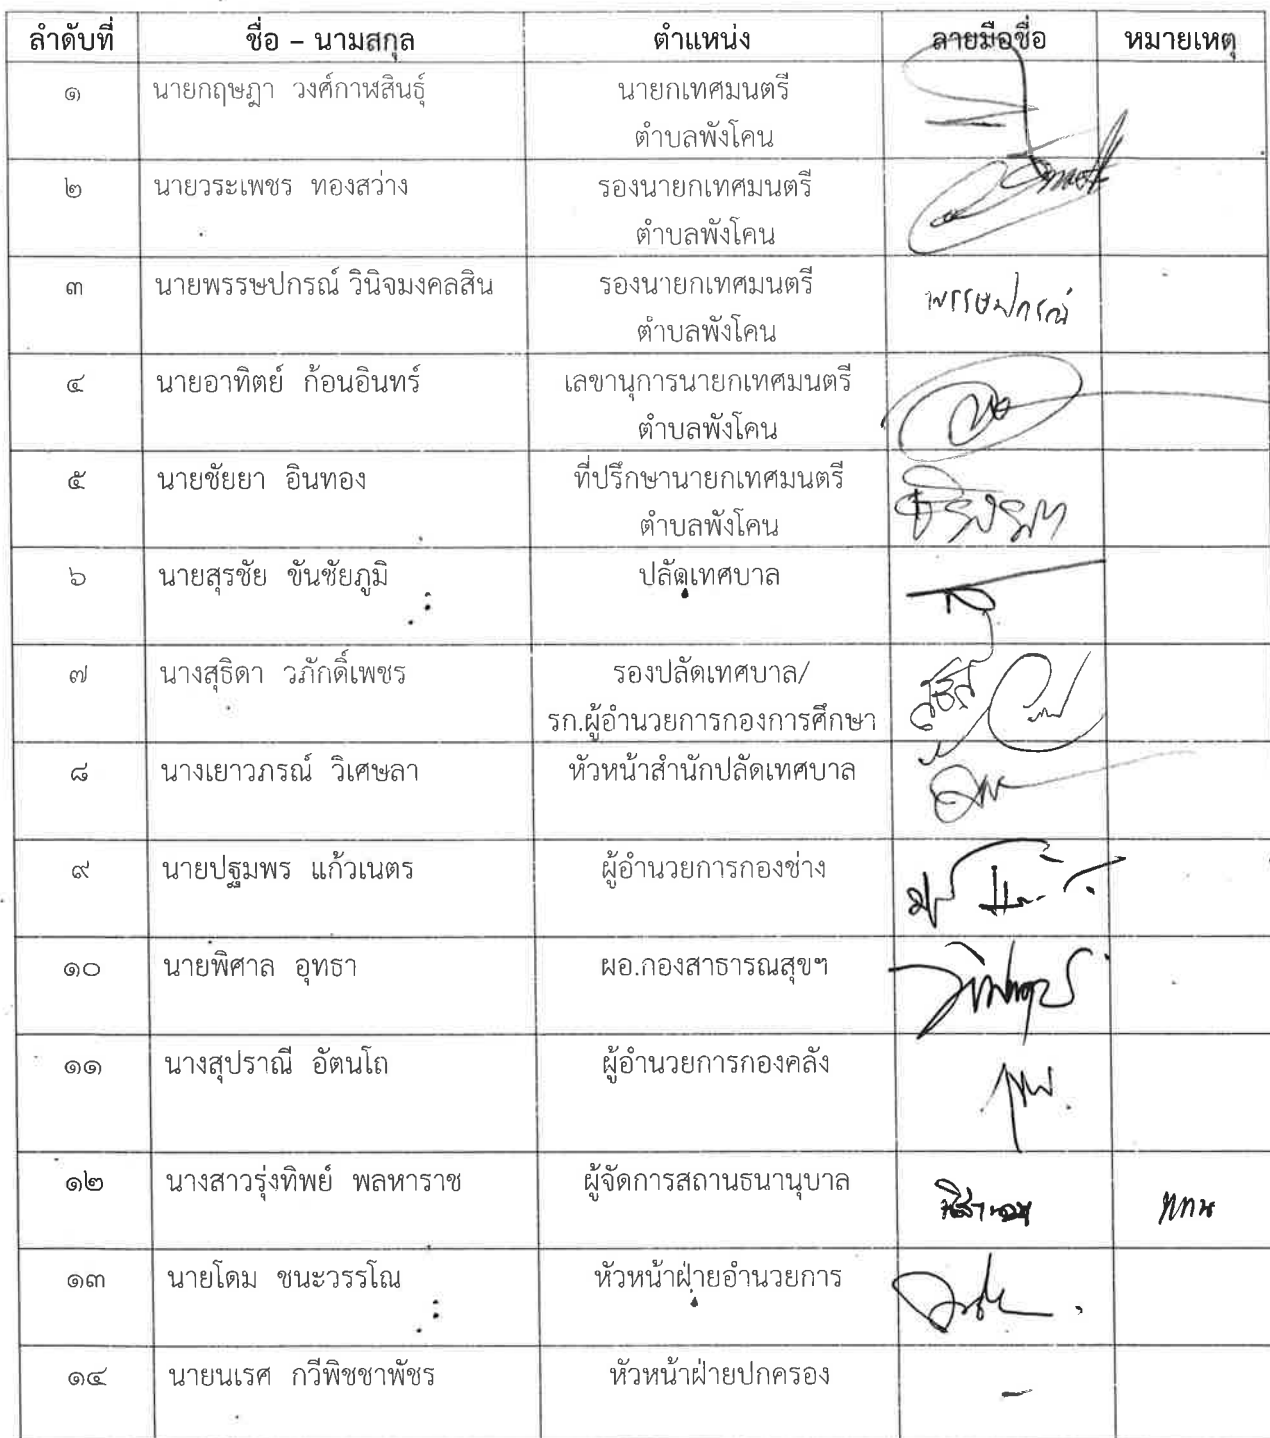 ลำดับที่ ชื่อ – นามสกุล ตำแหน่ง ลายมือชื่อ หมายเหตุ
๑ นายกฤษฎา วงศ์กาฬสินธุ์ นายกเทศมนตรี
ตำบลพังโคน
๒ นายวระเพชร ทองสว่าง รองนายกเทศมนตรี
ตำบลพังโคน
๓ นายพรรษปกรณ์ วินิจมงคลสิน รองนายกเทศมนตรี พรรษปกรณ์
ตำบลพังโคน
๔ นายอาทิตย์ ก้อนอินทร์ เลขานุการนายกเทศมนตรี
ตำบลพังโคน
๕ นายชัยยา อินทอง ที่ปรึกษานายกเทศมนตรี
ตำบลพังโคน
๖ นายสุรชัย ขันชัยภูมิ ปลัดเทศบาล
๗ นางสุธิดา วภักดิ์เพชร รองปลัดเทศบาล/
รก.ผู้อำนวยการกองการศึกษา
๘ นางเยาวภรณ์ วิเศษลา หัวหน้าสำนักปลัดเทศบาล
๙ นายปฐมพร แก้วเนตร ผู้อำนวยการกองช่าง
๑๐ นายพิศาล อุทธา ผอ.กองสาธารณสุขฯ
๑๑ นางสุปราณี อัตนโถ ผู้อำนวยการกองคลัง
๑๒ นางสาวรุ่งทิพย์ พลหาราช ผู้จัดการสถานธนานุบาล แทน
๑๓ นายโดม ชนะวรรโณ หัวหน้าฝ่ายอำนวยการ
๑๔ นายนเรศ กวีพิชชาพัชร หัวหน้าฝ่ายปกครอง –